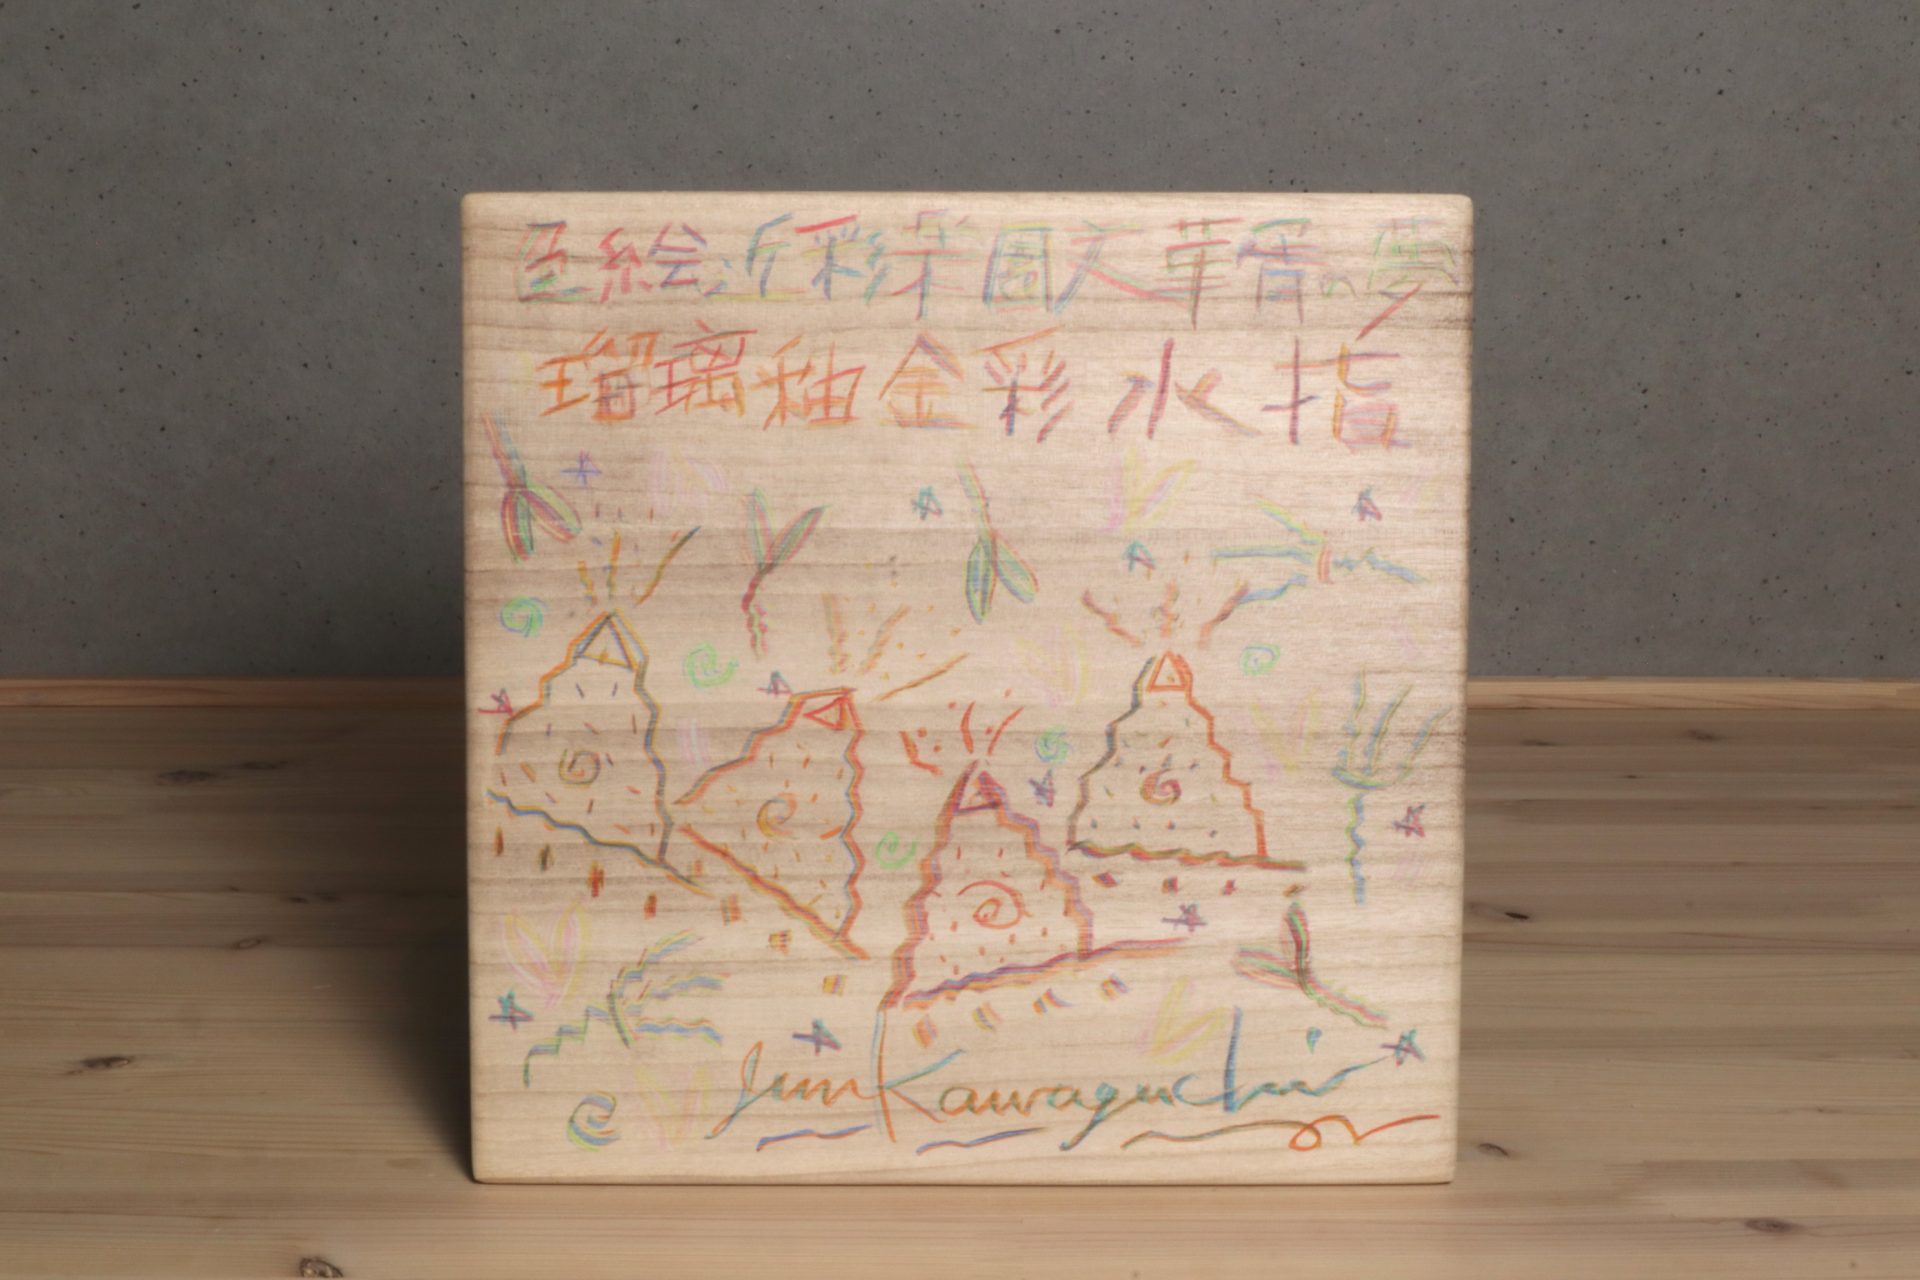 色絵近彩楽園文華胥の夢
瑠璃釉金彩水指
Jun Kawaguchi